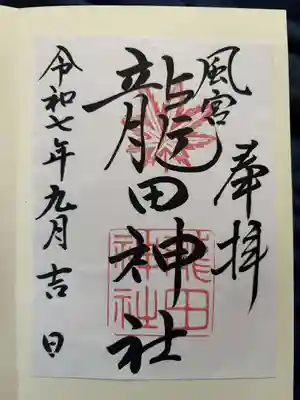 奉拝
風宮
龍田神社
龍田
神社
令和七年九月吉日